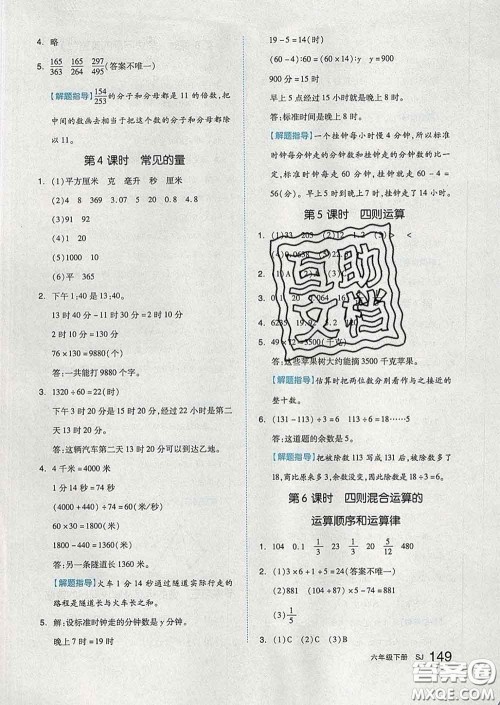 4. 略
5. 165/363 165/264 297/495 (答案不唯一)
【解题指导】154/253的分子和分母都是 11 的倍数,把
中间的数画去相当于把这个数的分子和分母同时
除以 11。
第 4 课时 常见的量
1. (1)平方厘米 克 毫升 秒(答案不唯一)
(2)4 8 369 0.375 2.4 3 15
(3)91 92
(4)1 20
(5)1000 10
(6)平 365
2. 下午 1:40 是 13:40。
13 时 40 分-11 时 30 分=2 时 10 分
2 时 10 分=130 分
76×130=9880(个)
答:一共能打 9880 个字。
3. 1320÷60=22(时)
下午 3 时 20 分是 15 时 20 分,经过 22 小时是第二
天 13 时 20 分。
答:这辆汽车第二天 13 时 20 分可以到达乙地。
4. 4 千米=4000 米
1 分 14 秒=74 秒
(4000+440)÷74=60(米/秒)
60×30=1800(米)
1800-440=1360(米)
答:另一条隧道长 1360 米。
【解题指导】火车 1 分 14 秒通过隧道实际行走的
路程是隧道长与火车长之和。
5. 解:设标准时钟走的分钟数是 y 分钟。
晚上 7 时=19(时)
19-5=14(时)
(60-4):60=(60×14):y y=900
900 分=15 时
早上 5 点经过 15 小时就是晚上 8 时。
答:标准时间是晚上 8 时。
【解题指导】一个挂钟每小时慢 4 分钟,所以标准
时钟每分钟走的分钟数与挂钟走的分钟数的比一
定,标准时钟走 60 分钟时,挂钟就走 60-4=
56(分)。从早上 5 时到晚上 7 时,挂钟走了 14 时。
第 5 课时 四则运算
1. (1)33 203 (2) 12 1.2 (3)> <
2.
3.
4.
5. 49×72≈3500(千克)
答:这些苹果树大约能摘 3500 千克苹果。
【解题指导】估算时把两位数分别看作与之接近的
整十数。
6. (131-113)÷3=6 113÷6=18……5
答:这道题的余数是 5。
【解题指导】把被除数 113 写成 131 后,被除数多了
18,商比原来多 3,余数没变,因此除数是 18÷3=6。
第 6 课时 四则混合运算的
运算顺序和运算律
1. 104 0.1 1/3 23 20 5/12 480
2. (1)3×6+6÷1=24(答案不唯一)
(2)881 (874+881)×5-74=881
(3)1/5
3. (1)C (2)C (3)B
互助
文档
六年级下册 SJ 149
答案圈
MXQE.COM